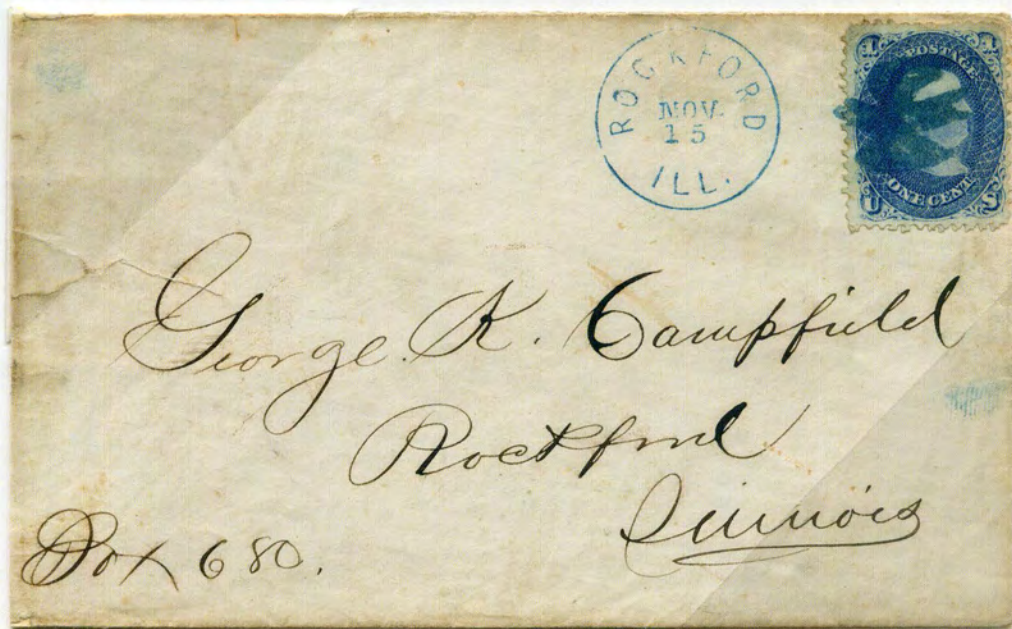 ROCKFORD
NOV.
15
ILL.
1 1
POSTAGE
ONE CENT
U S
George K. Campfield
Rockford
Illinois
Box 680.